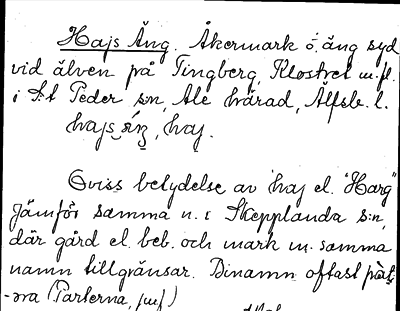 Hajs Äng. Åkermark o. äng syd
vid älven på Tingberg, Klostret m.fl.
i S:t Peder sn, Ale härad, Älfsb. l.
hajs äŋ, haj.
Oviss betydelse av haj el. "Harg"
Jämför samma n. i Skepplanda s:n,
där gård el. beb. och mark m. samma
namn tillgränsar. Binamn oftast
-na (Parterna, juf)